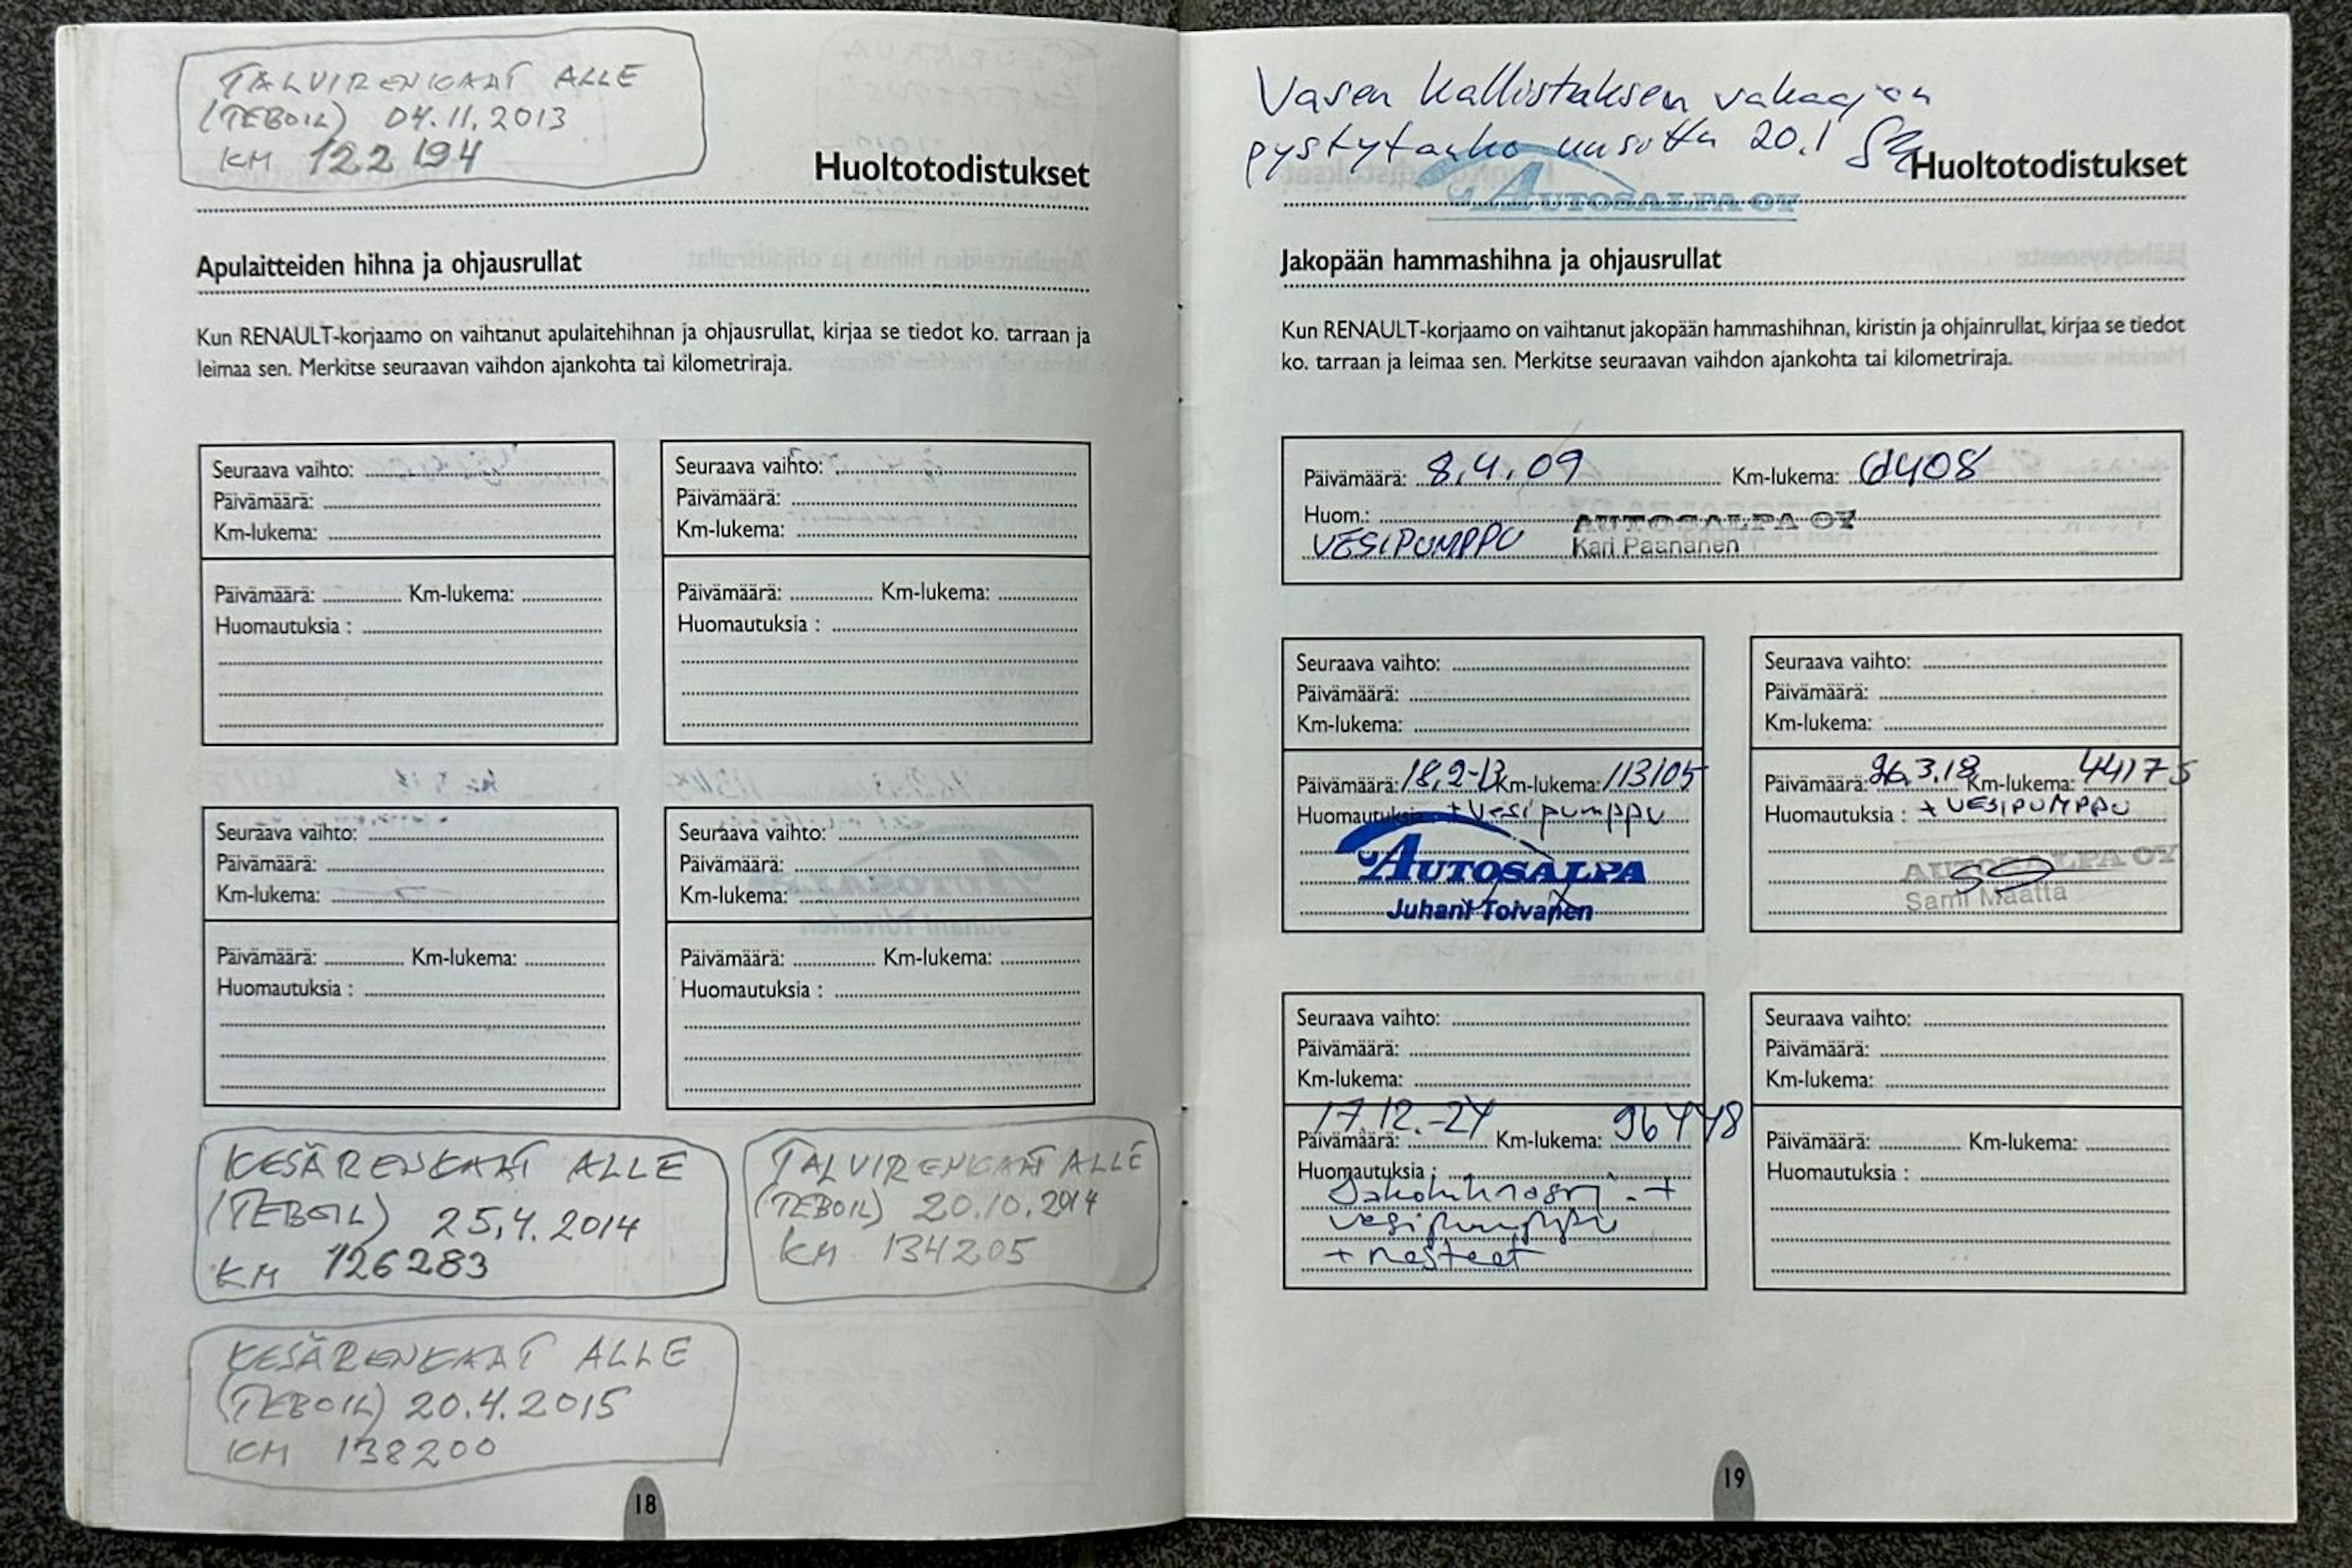 TALVIRENKAAT ALLE
(TEBOIL) 04.11.2013
KM 122194
Huoltotodistukset
Apulaitteiden hihna ja ohjausrullat
Kun RENAULT-korjaamo on vaihtanut apulaitehihnan ja ohjausrullat, kirjaa se tiedot ko. tarraan ja
leimaa sen. Merkitse seuraavan vaihdon ajankohta tai kilometriraja.
Seuraava vaihto:
Päivämäärä:
Km-lukema:
Päivämäärä: Km-lukema:
Huomautuksia :
Seuraava vaihto:
Päivämäärä:
Km-lukema:
Päivämäärä: Km-lukema:
Huomautuksia :
Seuraava vaihto:
Päivämäärä:
Km-lukema:
Päivämäärä: Km-lukema:
Huomautuksia :
Seuraava vaihto:
Päivämäärä:
Km-lukema:
Päivämäärä: Km-lukema:
Huomautuksia :
KESÄRENKAAT ALLE
(TEBOIL) 25.4.2014
KM 126283
TALVIRENKAAT ALLE
(TEBOIL) 20.10.2014
KM 134205
KESÄRENKAAT ALLE
(TEBOIL) 20.4.2015
KM 138200
18
Vasen kallistuksen vakaajan
pystytanko uusittu 20.1
Huoltotodistukset
AUTOSALPA OY
Jakopään hammashihna ja ohjausrullat
Kun RENAULT-korjaamo on vaihtanut jakopään hammashihnan, kiristin ja ohjainrullat, kirjaa se tiedot
ko. tarraan ja leimaa sen. Merkitse seuraavan vaihdon ajankohta tai kilometriraja.
Päivämäärä: 8.4.09 Km-lukema:
Huom.: AUTOSALPA OY
VESIPUMPPU Kari Paananen
Seuraava vaihto:
Päivämäärä:
Km-lukema:
Päivämäärä: 18.2-13 Km-lukema: 113105
Huomautuksia + Vesipumppu
AUTOSALPA
Juhani Toivanen
Seuraava vaihto:
Päivämäärä:
Km-lukema:
Päivämäärä: 26.3.18 Km-lukema: 44175
Huomautuksia : + VESIPUMPPU
AUTOSALPA OY
Sami Määttä
Seuraava vaihto:
Päivämäärä:
Km-lukema:
17.12.-24 96448
Päivämäärä: Km-lukema:
Huomautuksia :
Jakohihnasrj. +
vesipumppu
+ nesteet
Seuraava vaihto:
Päivämäärä:
Km-lukema:
Päivämäärä: Km-lukema:
Huomautuksia :
19